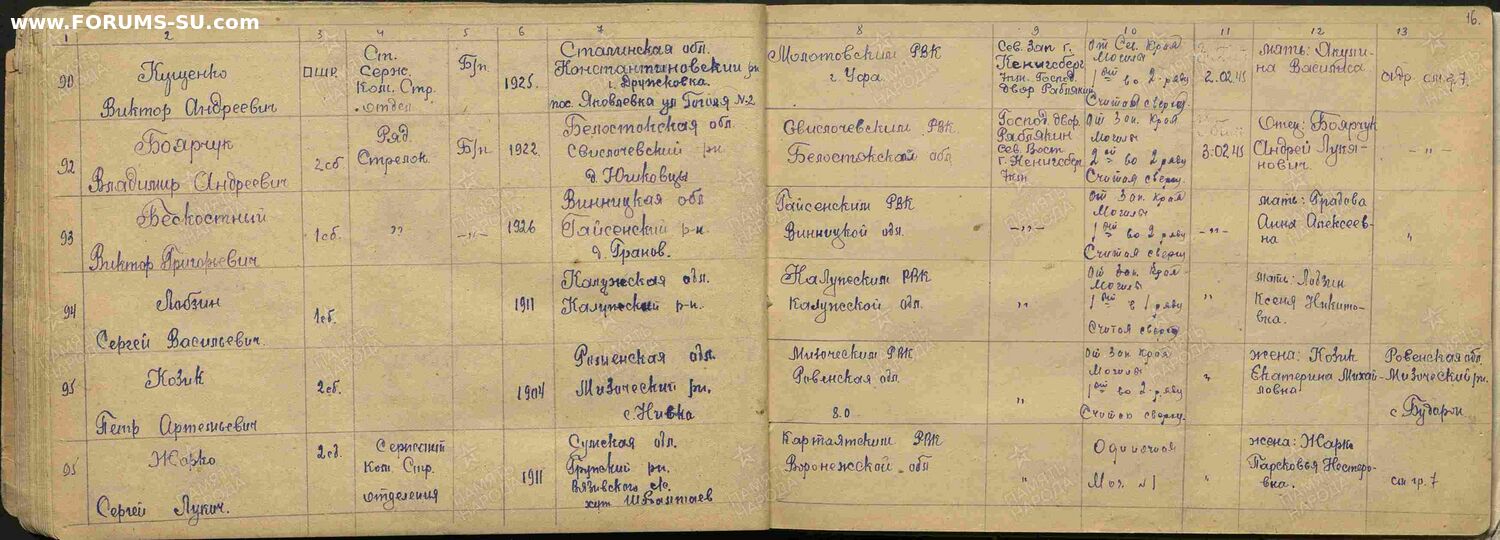 www.FORUMS-SU.com
16.
1 2 3 4 5 6 7 8 9 10 11 12 13
90
Кущенко
Виктор Андреевич
Ст.
Серж.
Ком. Стр.
отдел.
Б/п
1925.
Сталинская обл.
Константиновский рн
г. Дружковка
пос. Яковлевка ул Гоголя №2
Молотовским РВК
г. Уфа.
Сев. Зап г.
Кенигсберг
7км. Господ.
двор Раблякин
От Сев. Края
Могилы
1ый во 2 ряду
Считая сверху.
2.02.45
мать: Акули-
на Васильев
92
Боярчук
Владимир Андреевич
2сб
Ряд.
Стрелок.
Б/п
1922.
Белостокская обл.
Свислочевский рн
д. Югиковцы
Свислочевским РВК
Белостокской обл
Господ. двор.
Раблякин
Сев. Вост
г. Кенигсберг
7км
От Зап. Края
Могилы
2ой во 2 ряду
Считая сверху.
3.02.45
Отец: Боярчук
Андрей Лукя-
нович.
- „ -
93
Бескостный
Виктор Григорьевич
1сб.
„
- „ -
1926
Винницкая обл
Гайсенский р-н.
д. Гранов.
Гайсенским РВК
Винницкой обл.
- „ -
От Зап. Края
Могилы
1ый во 2 ряду
Считая сверху
- „ -
мать: Градова
Анна Алексеев-
на
„
94
Лабзин
Сергей Васильевич.
1сб.
1911
Калужская обл.
Калужский р-н.
Калужским РВК
Калужской обл.
„
От Зап. Края
Могилы
1ый в 1 ряду
Считая сверху
„
мать: Лабзин
Ксения Никито-
вна.
95
Козик
Петр Артемьевич
2сб.
1904
Ровенская обл.
Мизочский рн.
с. Нивка
Мизоческим РВК
Ровенская обл.
8.0
„
От Зап Края
Могилы
1ый во 2 ряду
Считаю сверху.
„
жена: Козик
Екатерина Михай-
ловна.
Ровенская обл.
Мизоческий рн.
95
Жарко
Сергей Лукич.
2сб.
Сержант
Ком. Стр.
отделения
1911
Сумская обл.
Грунский рн.
Картаятским РВК
Воронежской обл
„
Одиночная
Мог. №1
„
жена: Жарко
Парсковья Нестеро-
вна.
см гр. 7